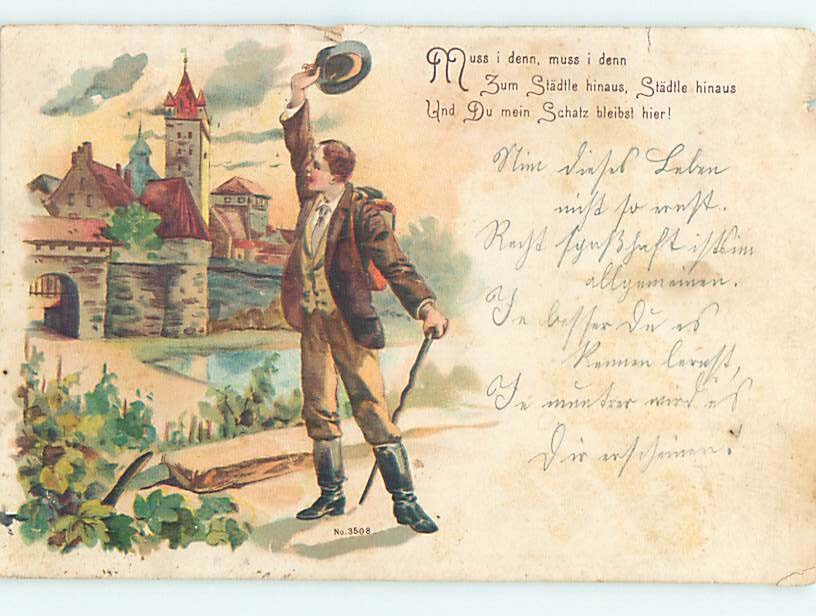 Muss i denn, muss i denn
Zum Städtle hinaus, Städtle hinaus
Und Du mein Schatz bleibst hier!
Nim dieses Leben
nicht so ernst.
Recht spaßhaft ists im
allgemeinen.
Je besser Du es
kennen lernst,
Je muntrer wird es
Dir erscheinen!
No. 3508